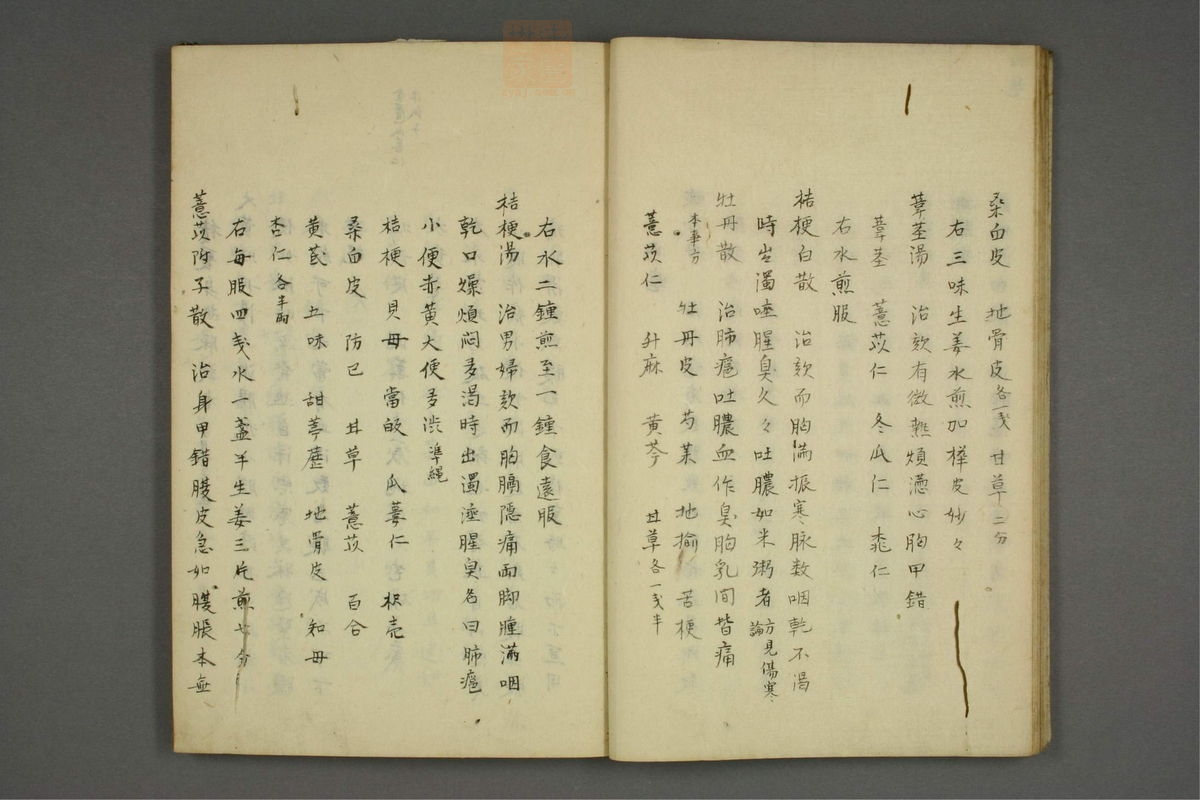 桑白皮 地骨皮各一戔 甘草二分
右三味生姜水煎加樺皮妙々
葦茎湯 治欬有微熱煩懣心胸甲錯
葦茎 薏苡仁 冬瓜仁 桃仁
右水煎服
桔梗白散 治欬而胸満振寒脉数咽乾不渇
時出濁唾腥臭久々吐膿如米粥者方見傷寒論
牡丹散 治肺癰吐膿血作臭胸乳間皆痛
本事方 牡丹皮 芍薬 地揄 苦梗
薏苡仁 升麻 黄芩 甘草各一戔半
右水二鍾煎至一鍾食遠服
桔梗湯 治男婦欬而胸膈隠痛両脚腫満咽
乾口燥煩悶多渇時出濁唾腥臭名曰肺癰
小便赤黄大便多渋準縄
桔梗 貝母 當皈 瓜蔞仁 枳壳
桑白皮 防已 甘草 薏苡 百合
黄芪 五味 甜葶藶 地骨皮 知母
杏仁各半両
右毎服四戔水一盞半生姜三片煎七分
薏苡附子散 治身甲錯腹皮急如腹脹本無